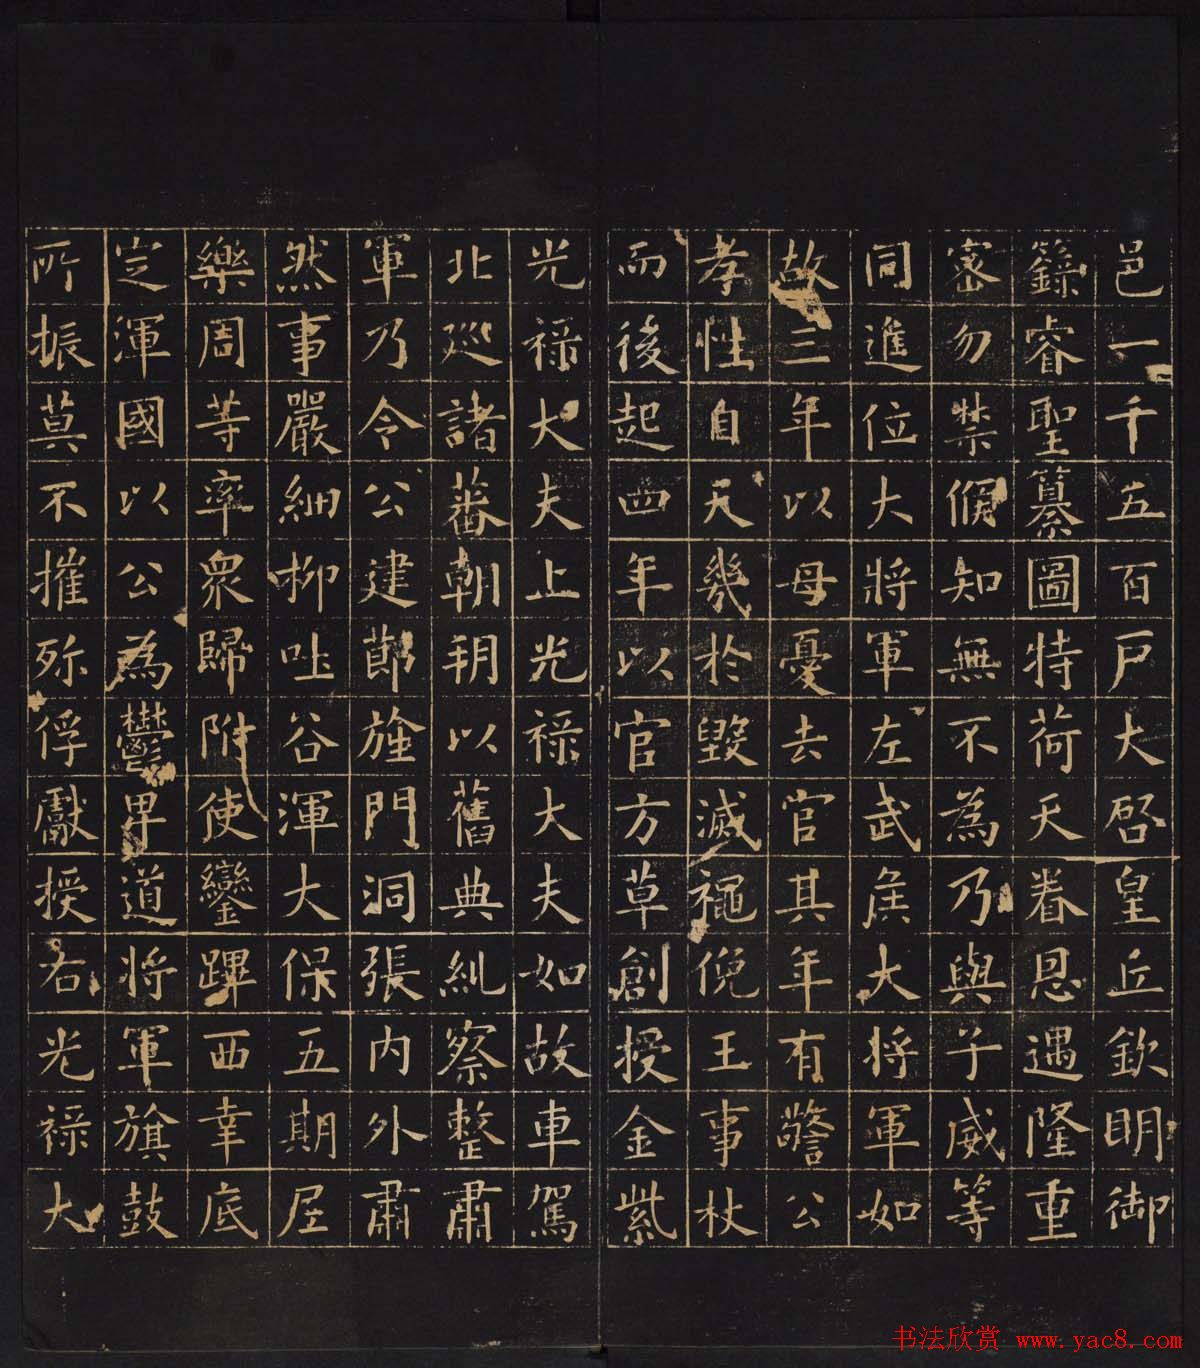 邑一千五百戶大啓皇丘欽明御
籙睿聖纂圖特荷天眷恩遇隆重
密勿禁候知無不為乃與子威等
同進位大將軍左武侯大將軍如
故三年以母憂去官其年有警公
孝性自天幾於毀滅禫俛王事杖
而後起四年以官方草創授金紫
光祿大夫上光祿大夫如故車駕
北巡諸蕃朝朔以舊典糺察整肅
軍乃令公建節旌門洞張內外肅
然事嚴細柳吐谷渾大保五期尼
樂周等率眾歸附使鑾蹕西幸底
定渾國以公為鬱卑道將軍旗鼓
所振莫不摧殄俘獻授右光祿大
书法欣赏 www.yac8.com